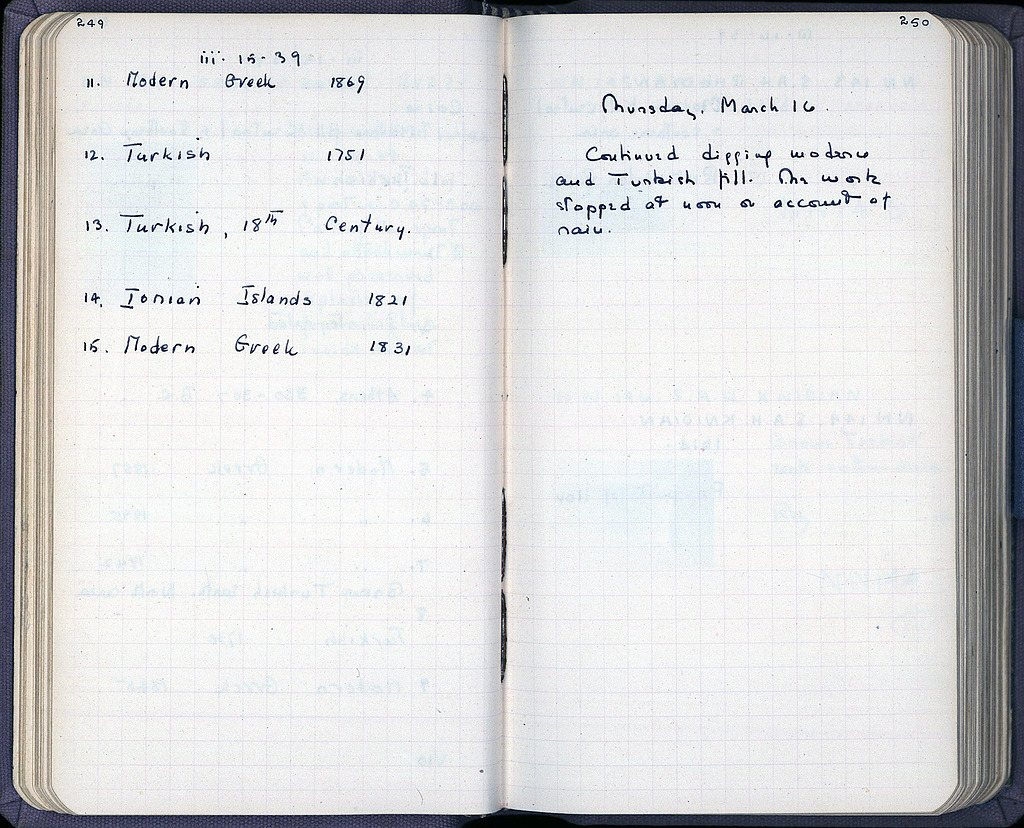 249
iii-15-39
11. Modern Greek 1869
12. Turkish 1751
13. Turkish, 18TH Century.
14. Ionian Islands 1821
15. Modern Greek 1831
250
Thursday, March 16
Continued digging modern
and Turkish fill. The work
stopped at noon on account of
rain.